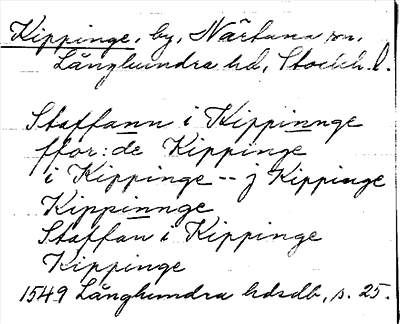 Kippinge, by, Närtuna sn,
Långhundra hd, Stockh. l.
Staffann i Kippinnge
ffor: de Kippinge
i Kippinge -- j Kippinge
Kippinnge
Staffan i Kippinge
Kippinge
1549 Långhundra hdsdb, s. 25.